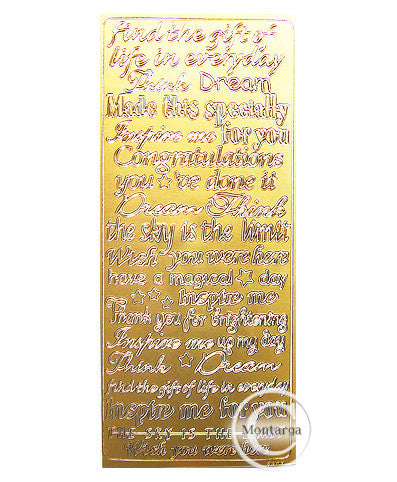 find the gift of
life in everyday
Think Dream
Made this specially
Inspire me for you
Congratulations
you 've done it
Dream Think
the sky is the limit
Wish you were here
have a magical day
Inspire me
Thank you for brightening
Inspire me up my day
Think Dream
find the gift of life in everyday
Inspire me for you
THE SKY IS THE
Wish you were here
Montarga